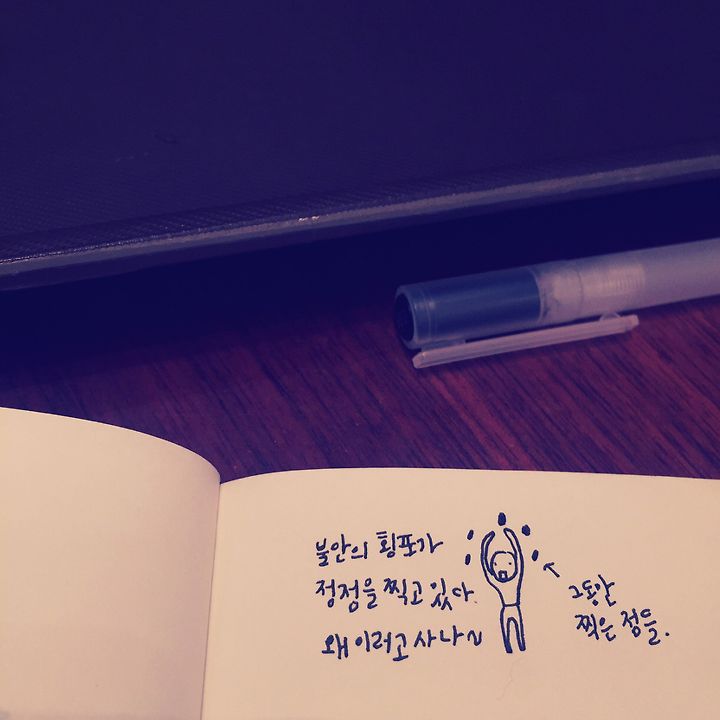 불안의 횡포가
정정을 찍고 있다.
왜 이러고 사나~
그동안
찍은 점들.